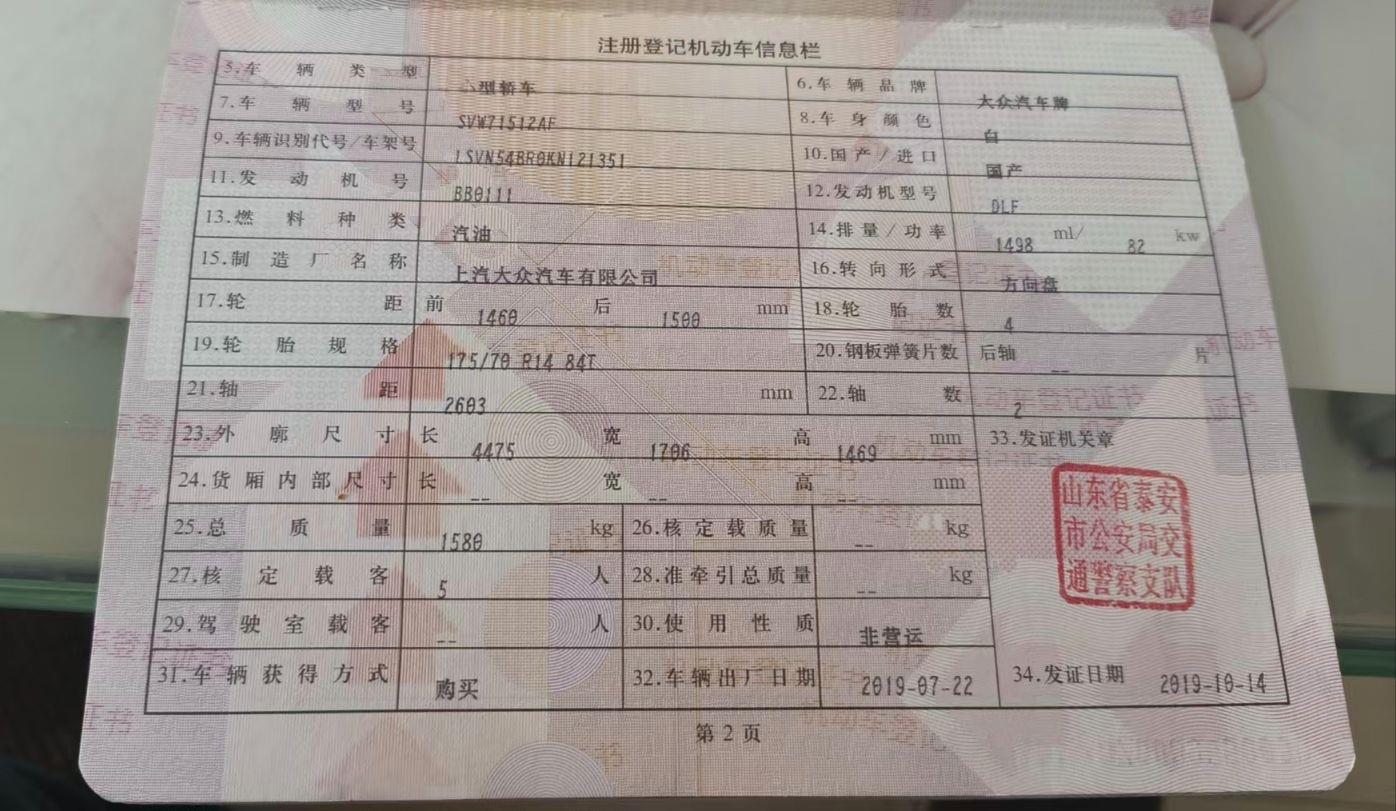 注册登记机动车信息栏
5.车辆类型 小型轿车 6.车辆品牌 大众汽车牌
7.车辆型号 SVW71512AF 8.车身颜色 白
9.车辆识别代号/车架号 LSVN54BR0KN121351 10.国产/进口 国产
11.发动机号 BB0111 12.发动机型号 DLF
13.燃料种类 汽油 14.排量/功率 1498 ml/ 82 kw
15.制造厂名称 上汽大众汽车有限公司 16.转向形式 方向盘
17.轮距 前 1460 后 1500 mm 18.轮胎数 4
19.轮胎规格 175/70 R14 84T 20.钢板弹簧片数 后轴 -- 片
21.轴距 2603 mm 22.轴数 2
23.外廓尺寸 长 4475 宽 1706 高 1469 mm 33.发证机关章
24.货厢内部尺寸 长 -- 宽 -- 高 -- mm
25.总质量 1580 kg 26.核定载质量 -- kg
山东省泰安
市公安局交
通警察支队
27.核定载客 5 人 28.准牵引总质量 -- kg
29.驾驶室载客 -- 人 30.使用性质 非营运
31.车辆获得方式 购买 32.车辆出厂日期 2019-07-22 34.发证日期 2019-10-14
第2页